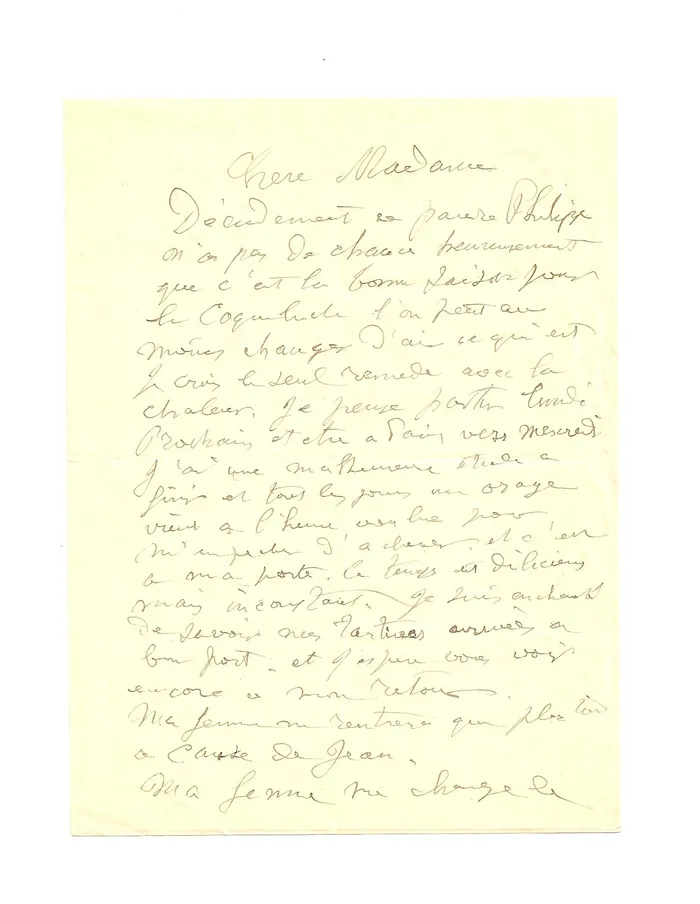 Chere Madame
Décidement ce pauvre Philippe
n'a pas de chance heureusement
que c'est la bonne saison pour
la Coqueluche l'on peut au
moins changer d'air ce qui est
je crois le seul remede avec la
chaleur. Je pense partir lundi
Prochain et etre a Paris vers mercredi
J'ai une malheureuse étude a
finir et tous les jours un orage
vient a l'heure voulue pour
m'empecher d'achever. et c'est
a ma porte. le temps est délicieux
mais inconstant. Je suis enchanté
de savoir mes tartines arrivées a
bon port. et j'espere vous voir
encore a mon retour.
Ma femme ne rentrera que plus tard
a cause de Jean.
Ma femme me charge de